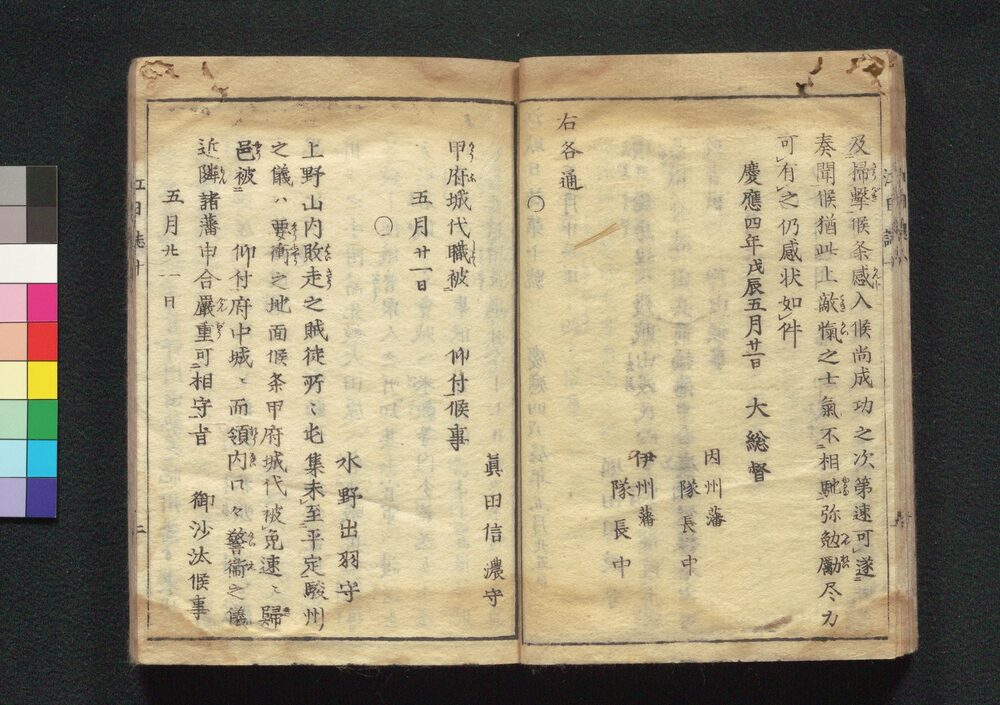 及掃撃候条感入候尚成功之次第速可遂
奏聞候猶此上敵愾之士氣不相馳弥勉勵尽力
可有之仍感状如件
慶應四年戊辰五月廿一日　大総督
因州藩
隊長中
伊州藩
隊長中
右各通
〇
眞田信濃守
甲府城代職被　仰付候事
五月廿一日
〇
水野出羽守
上野山内敗走之賊徒所〻屯集未至平定駿州
之儀ハ要衝之地面候条甲府城代被免速〻歸
邑被　仰付府中城〻而領内口々警衞之儀
近隣諸藩申合嚴重可相守旨　御沙汰候事
五月廿一日
江日誌十
三